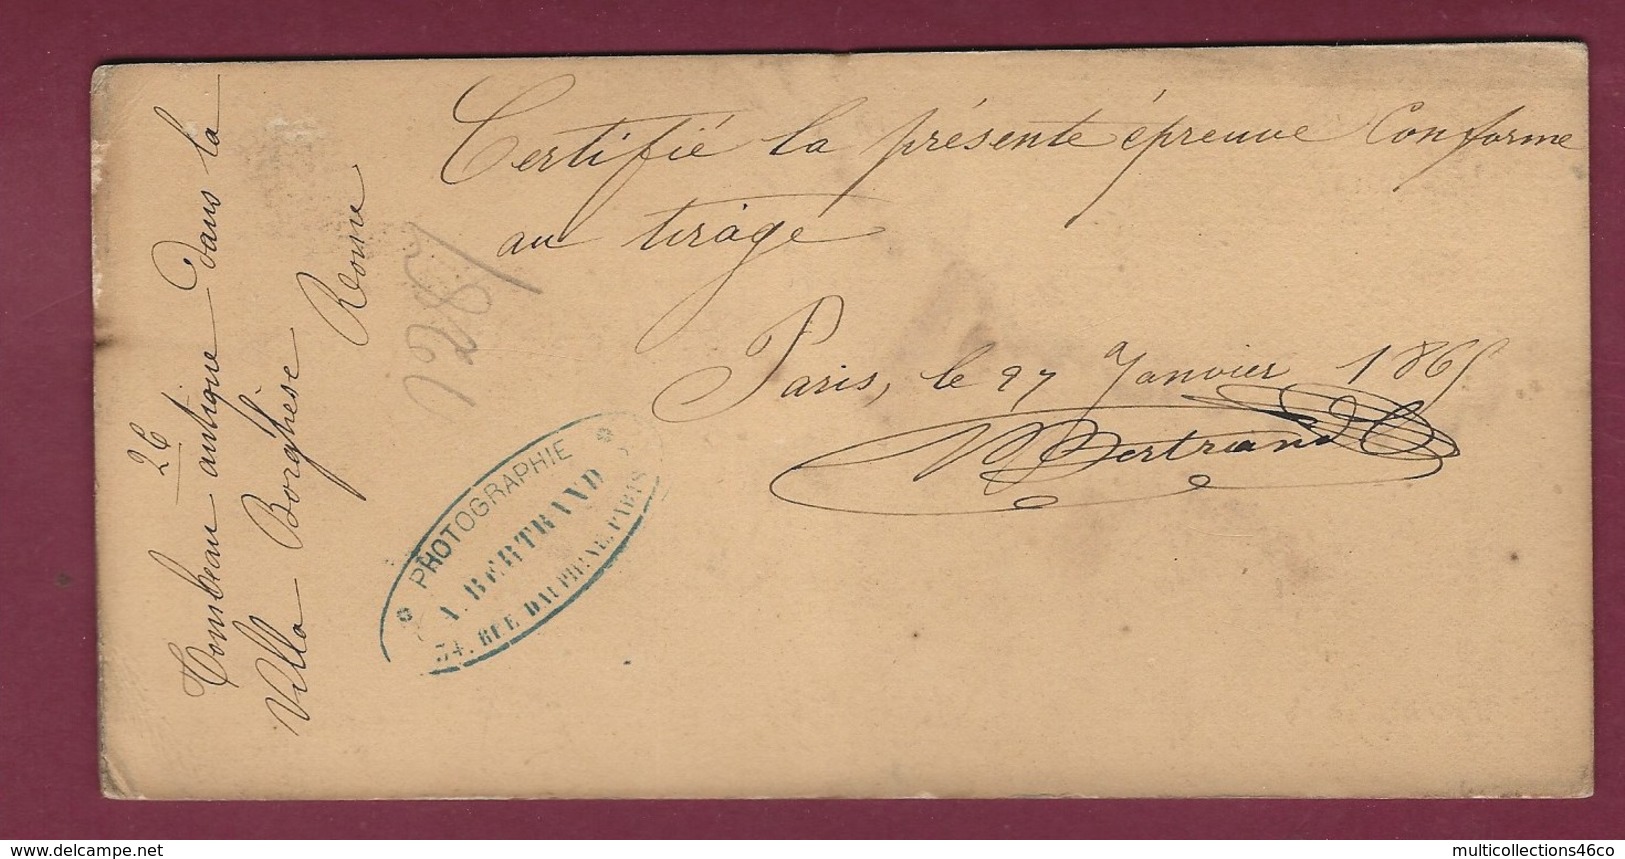 Certifié la présente épreuve Conforme
au tirage
Paris, le 27 Janvier 1865
Bertrand
26
Tombeau antique dans la
Villa Borghèse
Rome
PHOTOGRAPHIE
A. BERTRAND
34, RUE DAUPHINE, PARIS
www.delcampe.net
multicollections46co